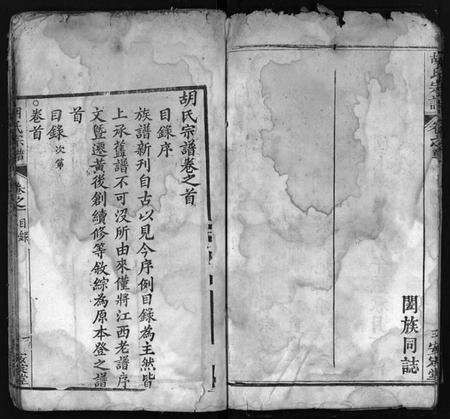 胡氏宗譜
闔族同誌
胡氏宗譜卷之首
目錄序
族譜新刊自古以見今序例目錄為主然皆
上承舊譜不可沒所由來僅將江西老譜序
文暨遷黃後創續修等敘綜為原本登之譜
首
目錄次第
卷首
胡氏宗譜
卷之 目錄